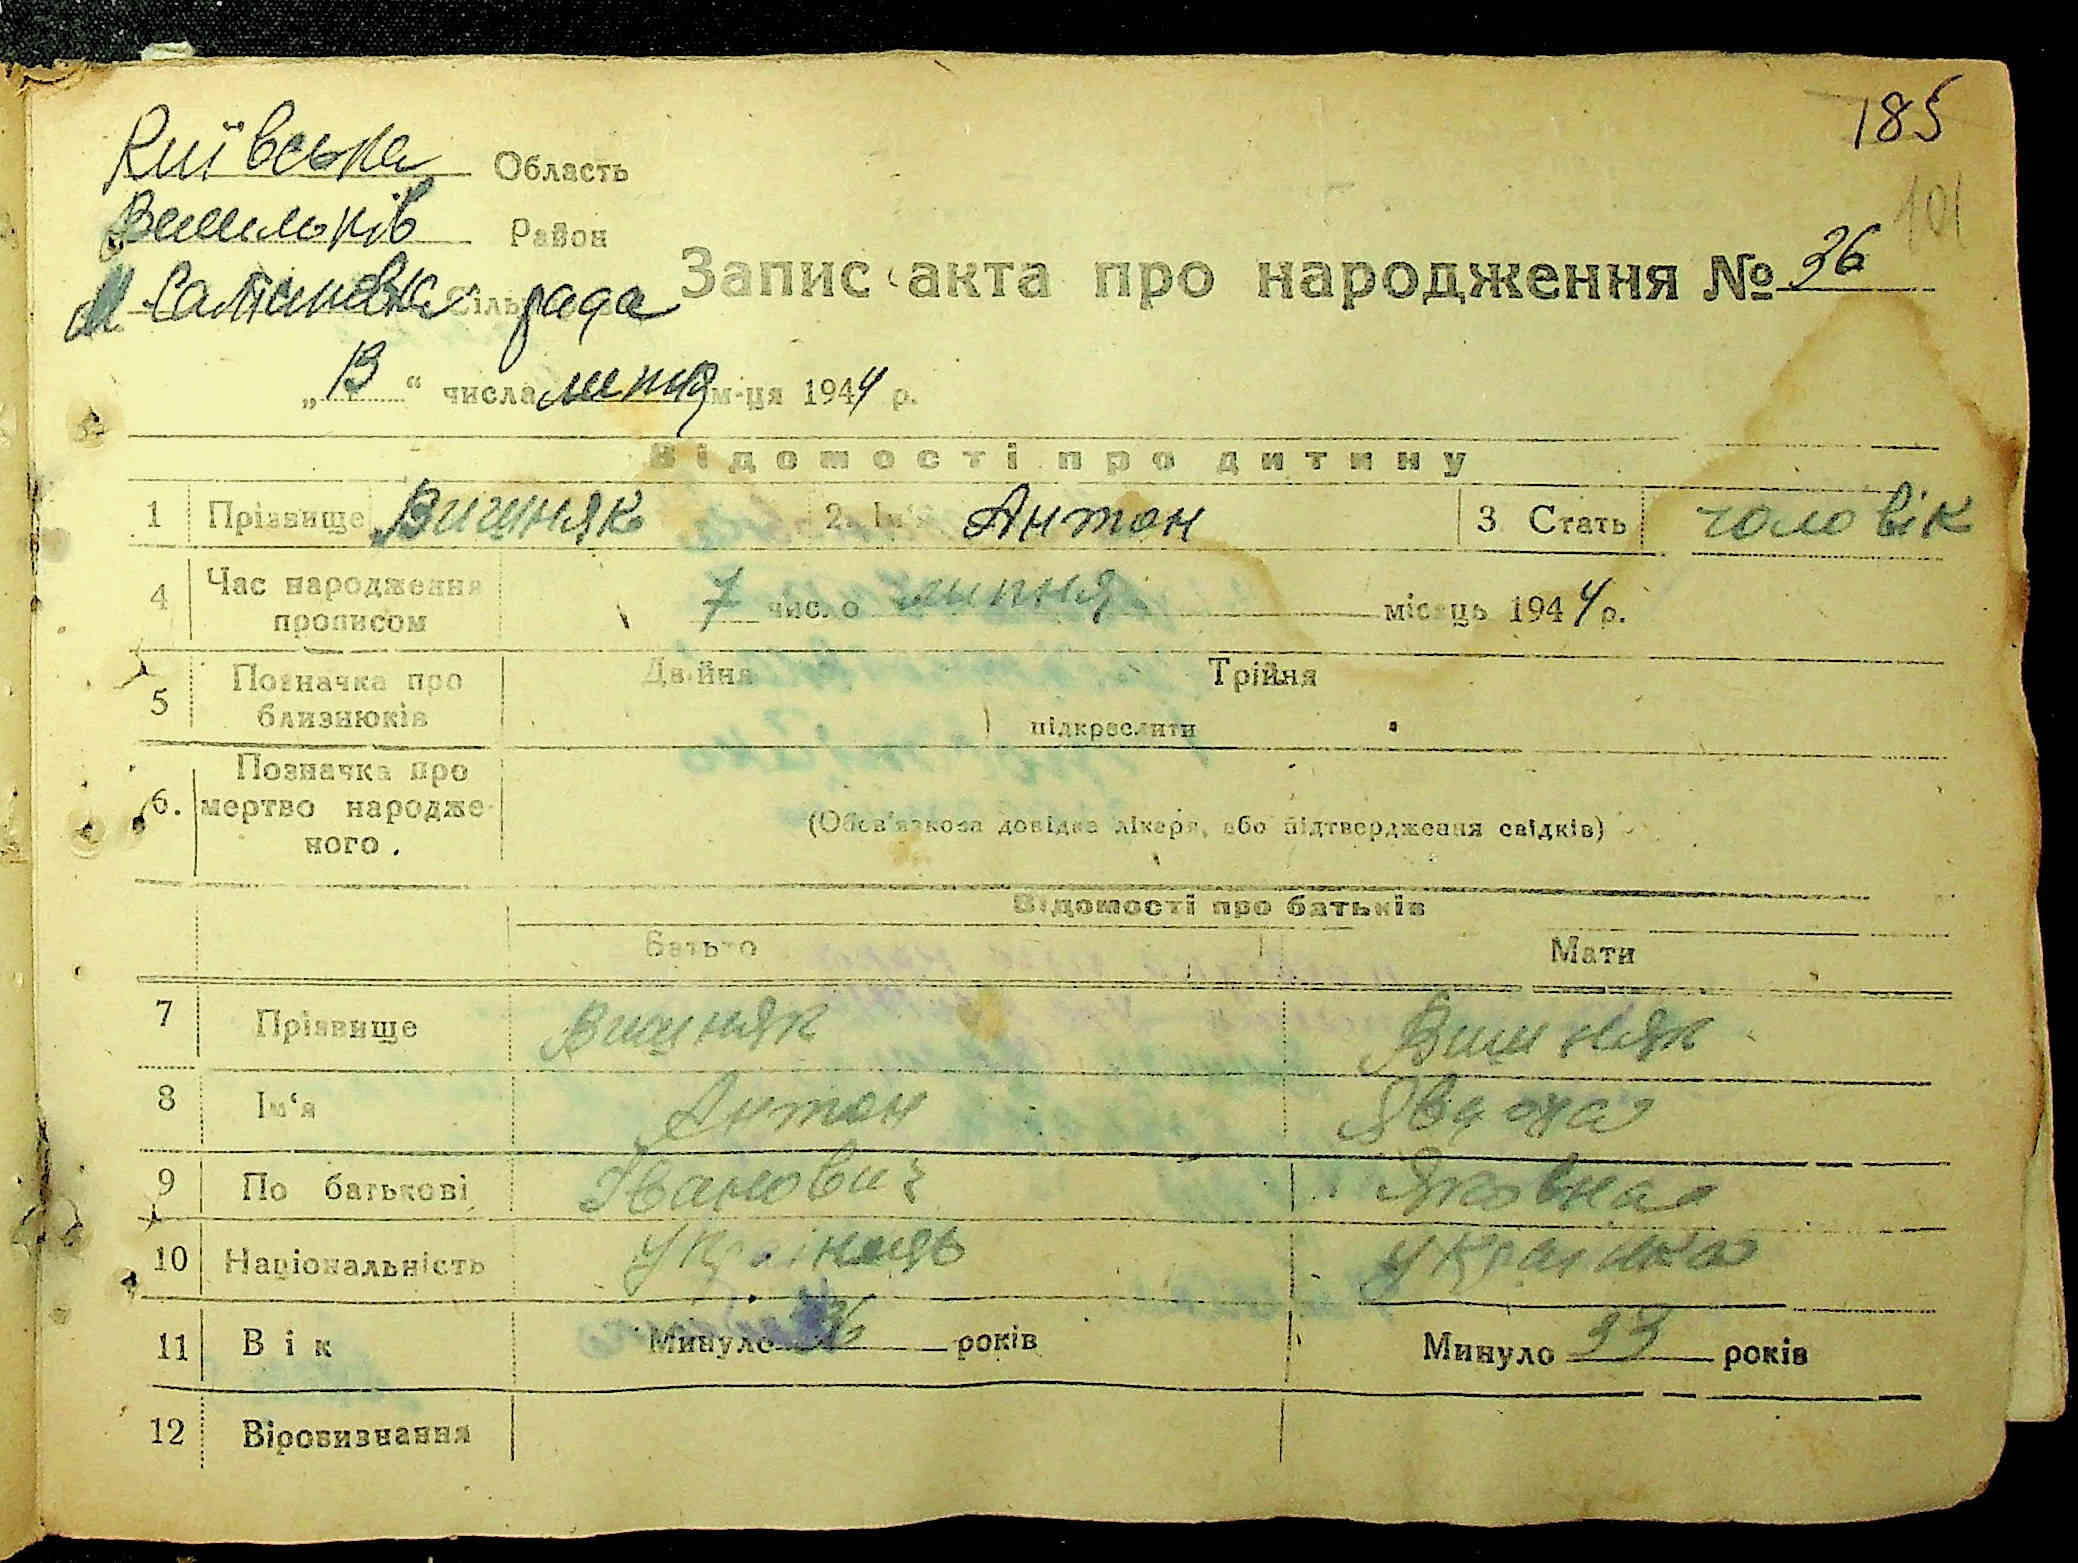 185
101
Київська Область
Район
Запис акта про народження № 36
М Салтановка Сіль рада
„13“ числа липня м-ця 1944 р.
Відомості про дитину
1 Прізвище Вишняк 2. Ім'я Антон 3 Стать чоловік
4 Час народження прописом 7 число липня місяць 1944 р.
5 Позначка про близнюків Двійня Трійня
підкреслити
6. Позначка про мертво народженого.
(Обов'язкова довідка лікаря, або підтвердження свідків)
Відомості про батьків
Батько Мати
7 Прізвище Вишняк Вишняк
8 Ім'я Антон
9 По батькові Іванович Яковна
10 Національність Українець Українка
11 Вік Минуло 36 років Минуло 33 років
12 Віровизнання